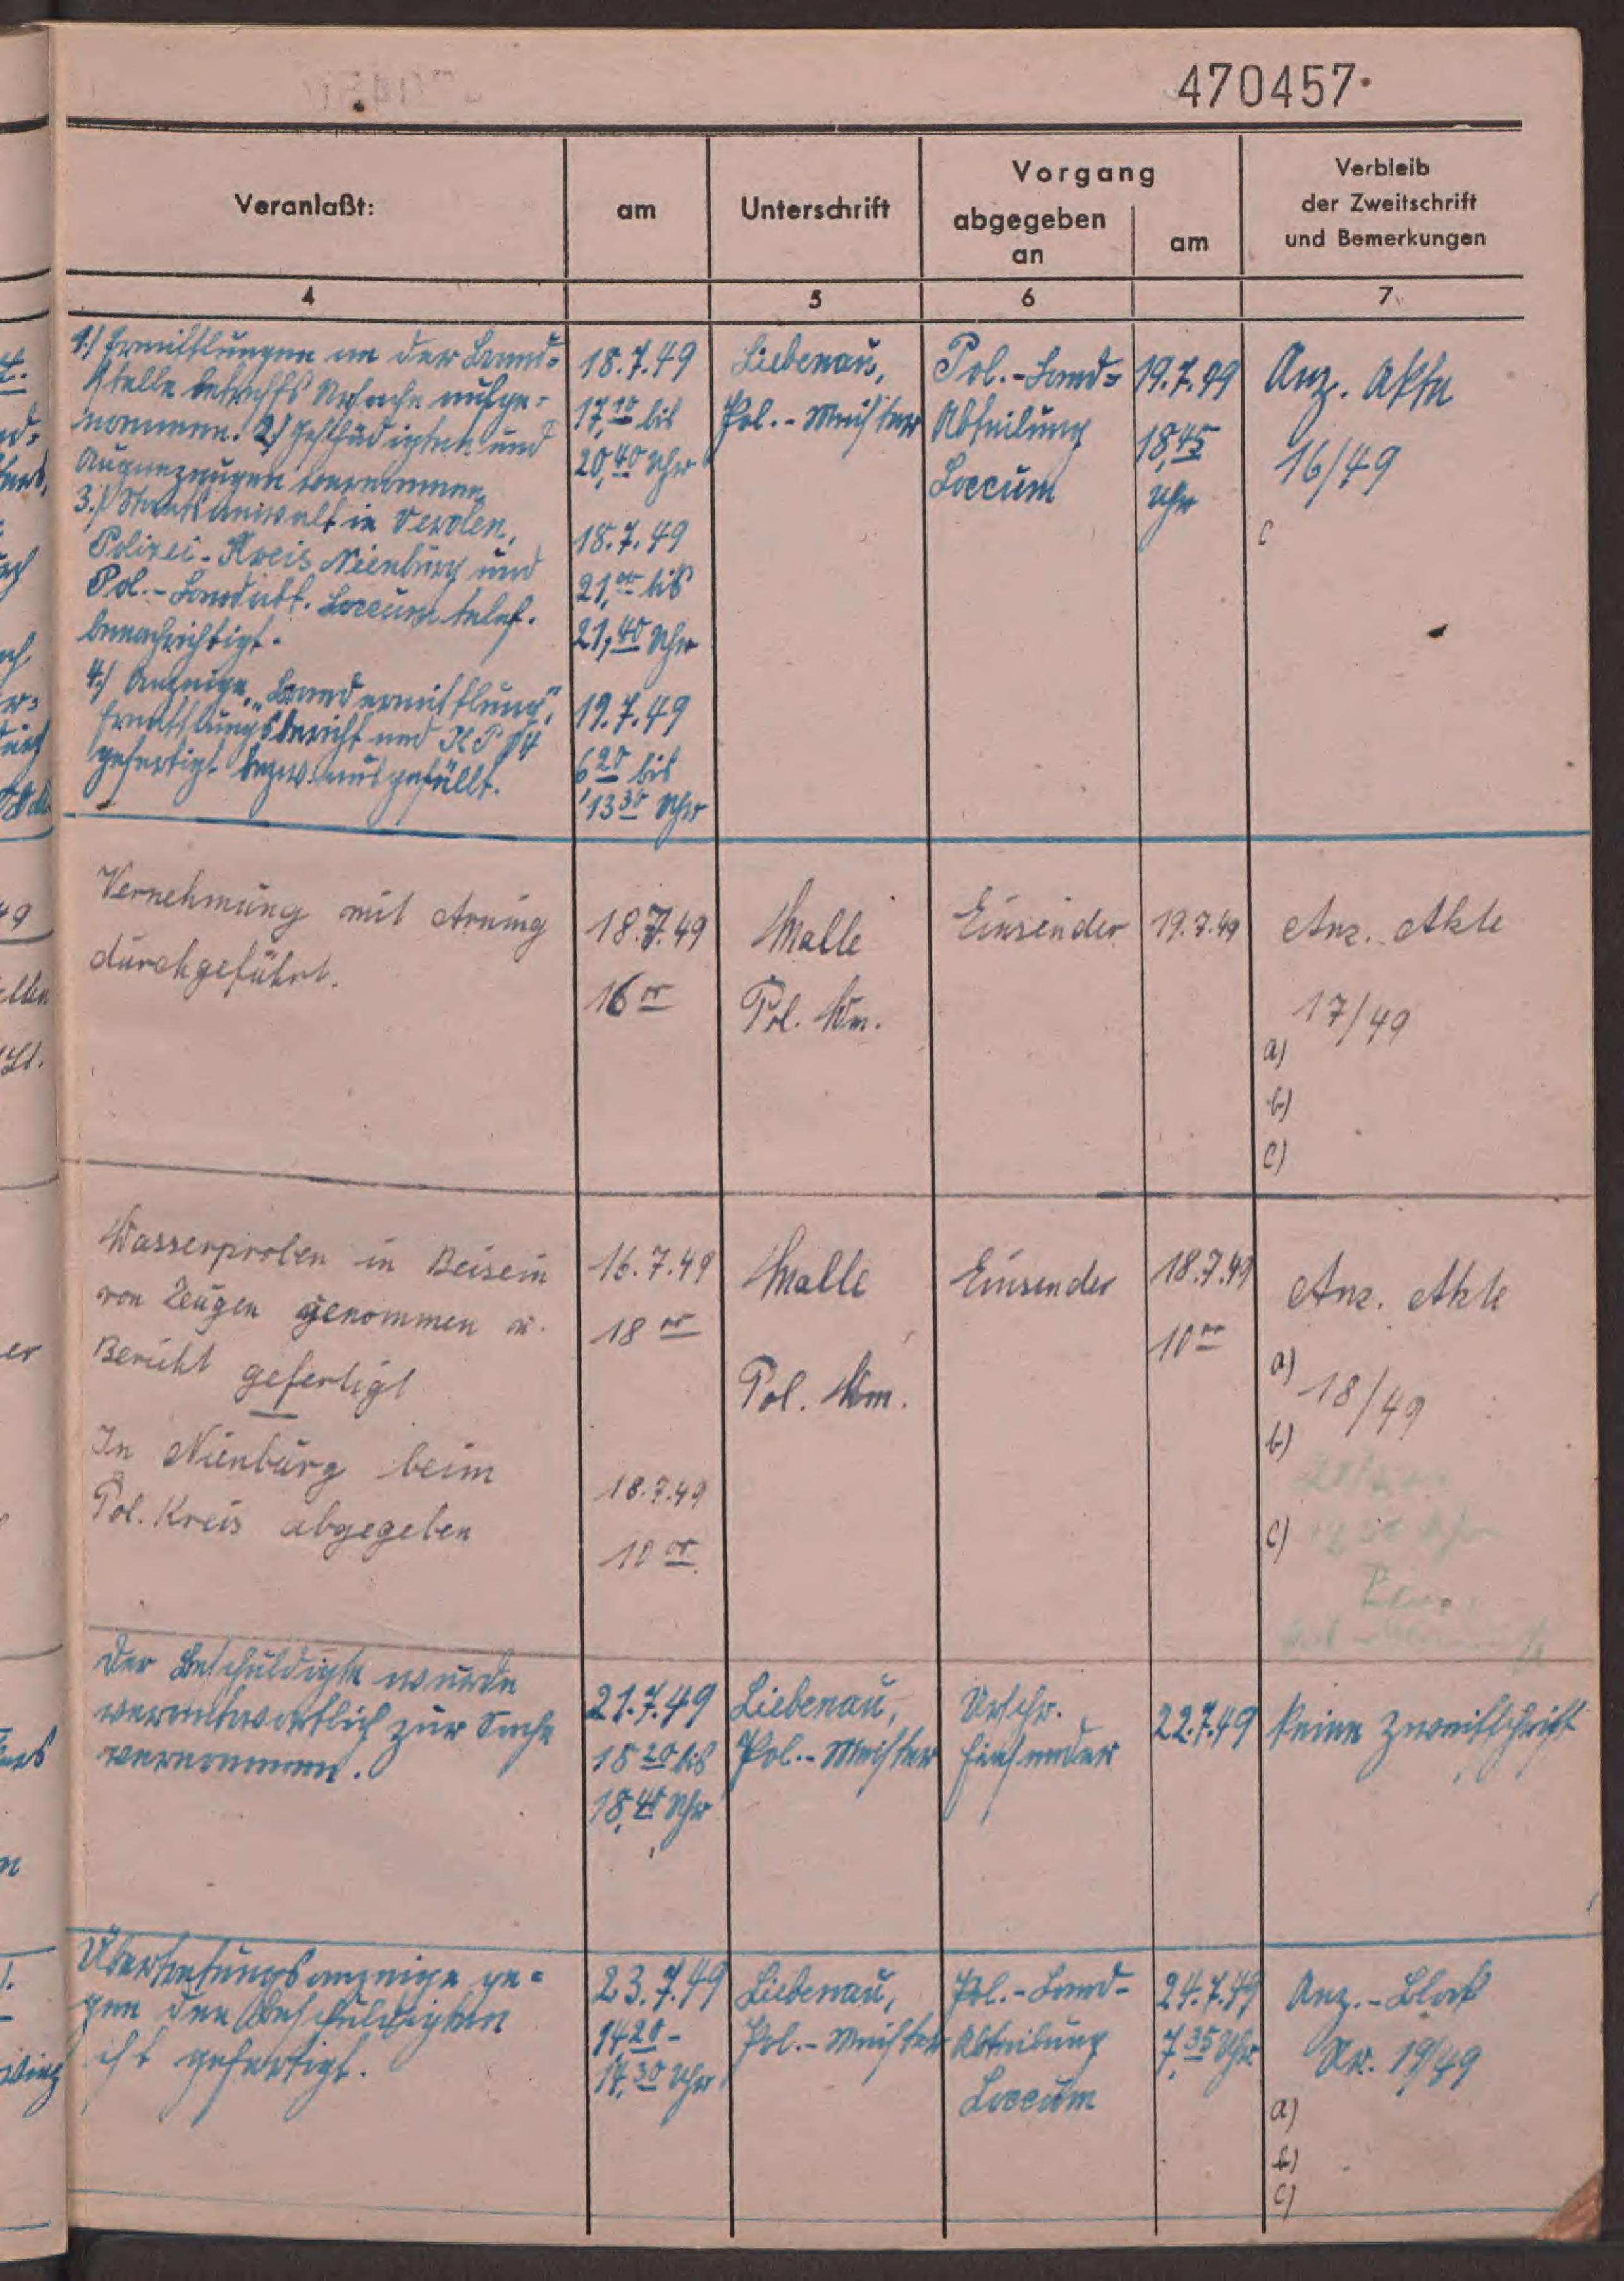 470457
Veranlaßt:
am
Unterschrift
Vorgang
abgegeben
an
am
Verbleib
der Zweitschrift
und Bemerkungen
4
5
6
7
1.) Ermittlungen an der Brand=
stelle betreffs Ursache aufge=
nommen. 2.) Geschädigten und
Augenzeugen vernommen,
3.) Staatsanwalt in Verden,
Polizei-Kreis Nienburg und
Pol.-Landabt. Loccum telef.
benachrichtigt.
4.) Anzeige, „Brandermittlung",
Ermittlungsbericht und KP 14
gefertigt bezw. ausgefüllt.
18.7.49
17,10 bis
20,40 Uhr
18.7.49
21,00 bis
21,40 Uhr
19.7.49
6 20 bis
13 30 Uhr
Liebenau,
Pol.-Meister
Pol.-Land=
Abteilung
Loccum
19.7.49
18,45
Uhr
Anz. Akte
16/49
c
Vernehmung mit Arning
durchgeführt.
18.7.49
16 00
Malle
Pol. Wm.
Einsender
19.7.49
Anz. Akte
17/49
a)
b)
c)
Wasserproben in Beisein
von Zeugen genommen u.
Bericht gefertigt
In Nienburg beim
Pol. Kreis abgegeben
16.7.49
18 00
18.7.49
10 00
Malle
Pol. Wm.
Einsender
18.7.49
10 00
Anz. Akte
a)
18/49
b)
c)
Der Beschuldigte wurde
verantwortlich zur Sache
vernommen.
21.7.49
18 20 bis
18,40 Uhr
Liebenau,
Pol.-Meister
Urschr.
Einsender
22.7.49
keine Zweitschrift
Übertretungsanzeige ge=
gen den Beschuldigten
ist gefertigt.
23.7.49
14,20 -
14,30 Uhr
Liebenau,
Pol.-Meister
Pol.-Land-
Abteilung
Loccum
24.7.49
7,35 Uhr
Anz.-Block
Nr. 19/49
a)
b)
c)